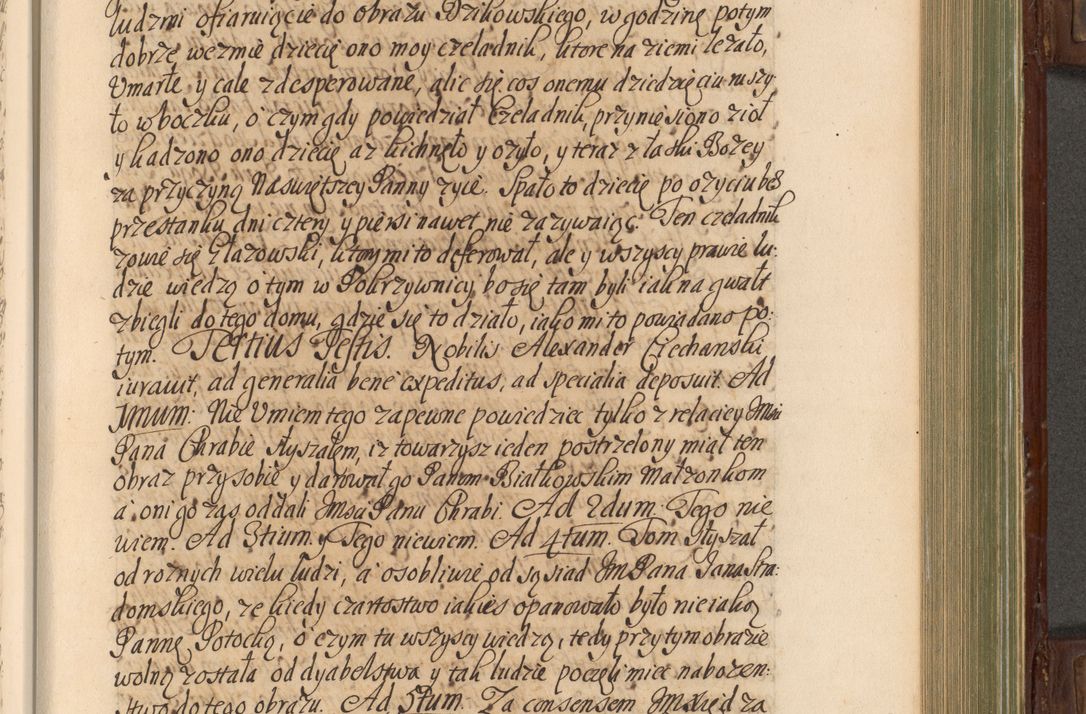 ludzmi ofiaruięcie do obrazu Dzikowskiego, w godzinę potym
dobrze wezmie dziecię ono moy czeladnik, ktore na ziemi leżało,
Umarłe y cale zdesperowane, alic się cos onemu dziedzięciu ruszy-
ło w boczku, o czym gdy powiedział Czeladnik, przyniesiono zioł
y kadzono ono dziecię az kichnęło y ozyło, y teraz z łaski Bozey
za przyczyną Naswiętszey Panny zyie. Spało to dziecię po ozyciu bes
przestanku dni cztery y piersi nawet nie zazywaiąc. Ten czeladnik
zowie się Głazowski, ktory mi to deferował, ale y wszyscy prawie lu:
dzie wiedzą o tym w Pokrzywnicy bo się tam byli iak na gwałt
zbiegli do tego domu, gdzie się to działo, iako mi to powiadano po:
tym. Tertius Testis. Nobilis Alexander Ciechanski
iuravit, ad generalia bene expeditus, ad specialia deposuit. Ad
1mum: Nie Umiem tego zapewne powiedziec tylko z relaciey Jmsci
Pana Chrabie słyszałem, iz towarzysz ieden postrzelony miał ten
obraz przy sobie y darował go Panom Białkowskim Małzonkom
a oni go zas oddali Jmsci Panu Chrabi. Ad 2dum. Tego nie
wiem. Ad 3tium. Tego niewiem. Ad 4tum. Tom słyszał
od roznych wielu ludzi, a osobliwie od sąsiad Jm Pana Jana Stra:
domskiego, ze kiedy czartostwo iakies opanowało było nieiaką
Pannę Potocką, o czym tu wszyscy wiedzą, tedy przy tym obrazie
wolną została od dyabelstwa y tak ludzie poczęli miec nabozen:
stwo do tego obrazu. Ad 5tum. Za consensem Jmxiędza